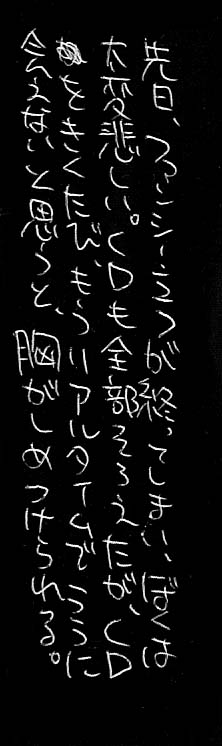 先日、ファンシーララが終ってしまい、ぼくは
大変悲しい。CDも全部そろえたが、CD
をきくたび、もうリアルタイムでララに
会えないと思うと、胸がしめつけられる。